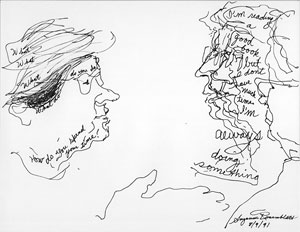 What
What
What
do you do?
How do you spend
your time?
I'm reading
a
good
book
but
I don't
have
much
time
I'm
always
doing
something
8/9/91